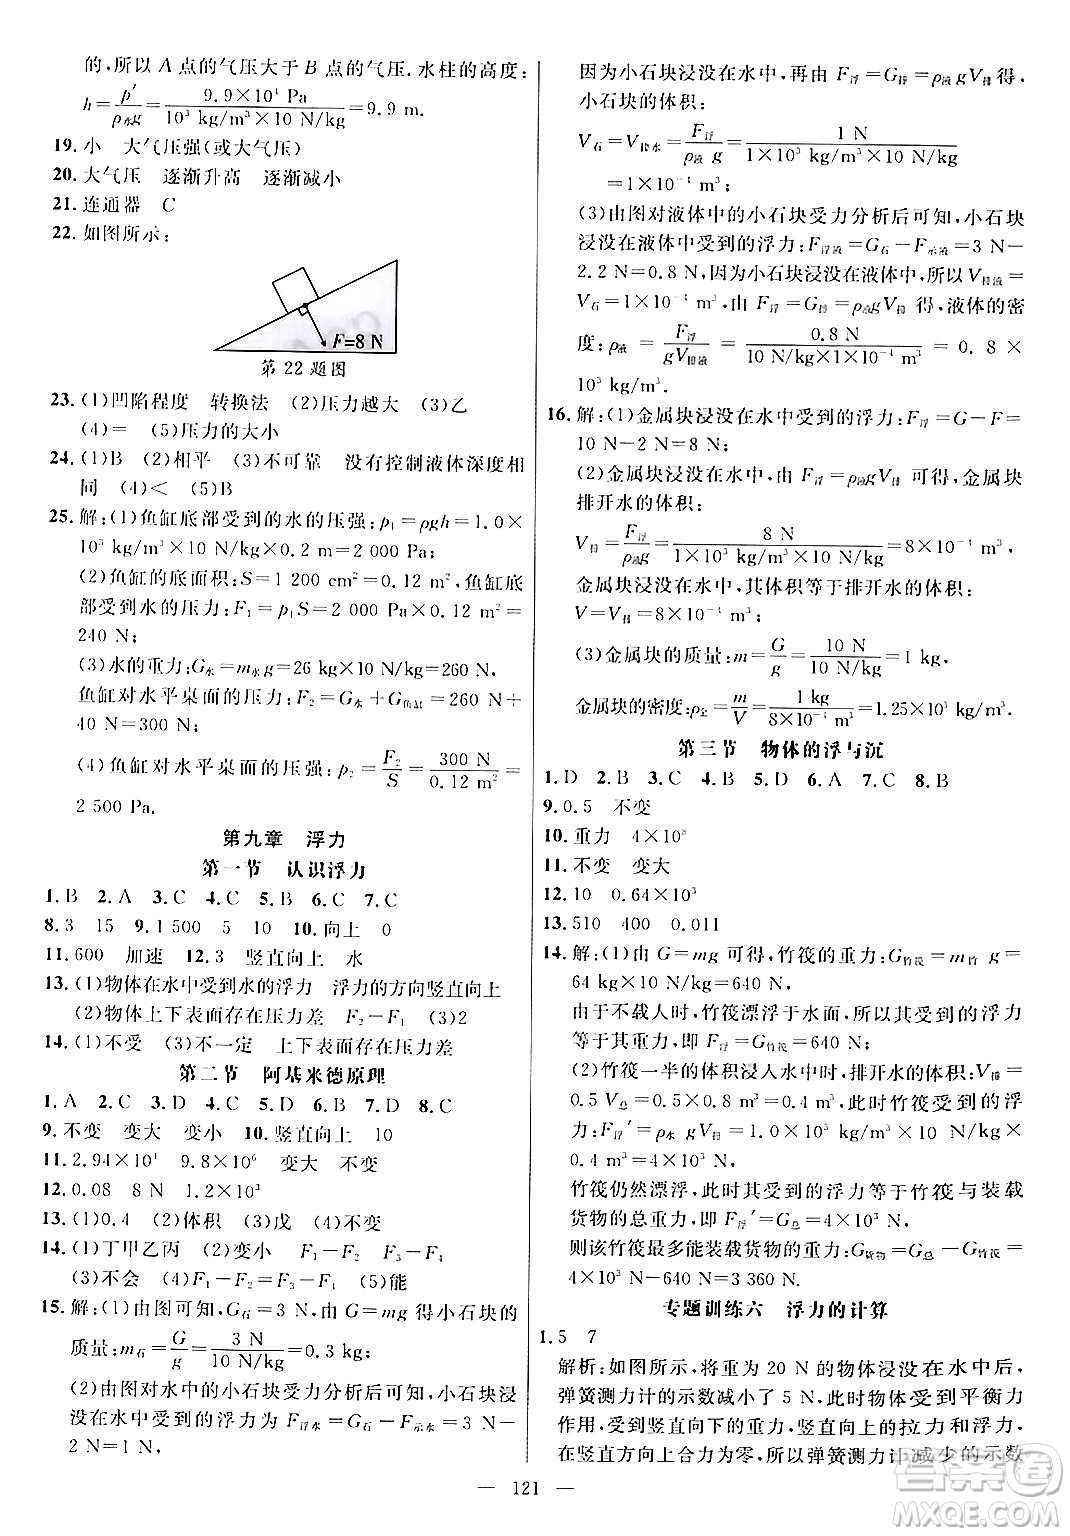 的,所以 A 点的气压大于 B 点的气压.水柱的高度:
h=p′/ρ水g=9.9×10⁴ Pa/10³ kg/m³×10 N/kg=9.9 m.
19.小 大气压强(或大气压)
20.大气压 逐渐升高 逐渐减小
21.连通器 C
22.如图所示:
F=8 N
第 22 题图
23.(1)凹陷程度 转换法 (2)压力越大 (3)乙
(4)= (5)压力的大小
24.(1)B (2)相平 (3)不可靠 没有控制液体深度相
同 (4)< (5)B
25.解:(1)鱼缸底部受到的水的压强:p₁=ρgh=1.0×
10³ kg/m³×10 N/kg×0.2 m=2 000 Pa;
(2)鱼缸的底面积:S=1 200 cm²=0.12 m²,鱼缸底
部受到水的压力:F₁=p₁S=2 000 Pa×0.12 m²=
240 N;
(3)水的重力:G水=m水g=26 kg×10 N/kg=260 N,
鱼缸对水平桌面的压力:F₂=G水+G鱼缸=260 N+
40 N=300 N;
(4)鱼缸对水平桌面的压强:p₂=F₂/S=300 N/0.12 m²=
2 500 Pa.
第九章 浮力
第一节 认识浮力
1.B 2.A 3.C 4.C 5.B 6.C 7.C
8.3 15 9.1 500 5 10 10.向上 0
11.600 加速 12.3 竖直向上 水
13.(1)物体在水中受到水的浮力 浮力的方向竖直向上
(2)物体上下表面存在压力差 F₂-F₁ (3)2
14.(1)不受 (2)不一定 上下表面存在压力差
第二节 阿基米德原理
1.A 2.C 3.D 4.D 5.B 6.D 7.D 8.C
9.不变 变大 变小 10.竖直向上 10
11.2.94×10⁴ 9.8×10⁶ 变大 不变
12.0.08 8 N 1.2×10³
13.(1)0.4 (2)体积 (3)戊 (4)不变
14.(1)丁甲乙丙 (2)变小 F₁-F₂ F₃-F₄
(3)不会 (4)F₁-F₃ (5)能
15.解:(1)由图可知,G石=3 N,由 G=mg 得小石块的
质量:m石=G/g=3 N/10 N/kg=0.3 kg;
(2)由图对水中的小石块受力分析后可知,小石块浸
没在水中受到的浮力为 F浮水=G石-F示水=3 N-
2 N=1 N,
因为小石块浸没在水中,再由 F浮=G排=ρ液gV排得,
小石块的体积:
V石=V排水=F浮/ρ液 g=1 N/1×10³ kg/m³×10 N/kg
=1×10⁻⁴ m³;
(3)由图对液体中的小石块受力分析后可知,小石块
浸没在液体中受到的浮力:F浮液=G石-F示液=3 N-
2.2 N=0.8 N,因为小石块浸没在液体中,所以 V排液=
V石=1×10⁻⁴ m³,由 F浮=G排=ρ液gV排 得,液体的密
度:ρ液=F浮/gV排液=0.8 N/10 N/kg×1×10⁻⁴ m³=0.8×
10³ kg/m³.
16.解:(1)金属块浸没在水中受到的浮力:F浮=G-F=
10 N-2 N=8 N;
(2)金属块浸没在水中,由 F浮=ρ液gV排 可得,金属块
排开水的体积:
V排=F浮/ρ水g=8 N/1×10³ kg/m³×10 N/kg=8×10⁻⁴ m³,
金属块浸没在水中,其体积等于排开水的体积:
V=V排=8×10⁻⁴ m³;
(3)金属块的质量:m=G/g=10 N/10 N/kg=1 kg,
金属块的密度:ρ金=m/V=1 kg/8×10⁻⁴ m³=1.25×10³ kg/m³.
第三节 物体的浮与沉
1.D 2.B 3.C 4.B 5.D 6.A 7.C 8.B
9.0.5 不变
10.重力 4×10⁸
11.不变 变大
12.10 0.64×10³
13.510 400 0.011
14.解:(1)由 G=mg 可得,竹筏的重力:G竹筏=m竹 g=
64 kg×10 N/kg=640 N,
由于不载人时,竹筏漂浮于水面,所以其受到的浮力
等于其重力,即 F浮=G竹筏=640 N;
(2)竹筏一半的体积浸入水中时,排开水的体积 V排=
0.5 V总=0.5×0.8 m³=0.4 m³,此时竹筏受到的浮
力:F浮′=ρ水 gV排=1.0×10³ kg/m³×10 N/kg×
0.4 m³=4×10³ N,
竹筏仍然漂浮,此时其受到的浮力等于竹筏与装载
货物的总重力,即 F浮′=G总=4×10³ N,
则该竹筏最多能装载货物的重力:G货物=G总-G竹筏=
4×10³ N-640 N=3 360 N.
专题训练六 浮力的计算
1.5 7
解析:如图所示,将重为 20 N 的物体浸没在水中后,
弹簧测力计的示数减小了 5 N,此时物体受到平衡力
作用,受到竖直向下的重力,竖直向上的拉力和浮力,
在竖直方向上合力为零,所以弹簧测力计减少的示数
— 121 —
答案圈
MXQE.COM